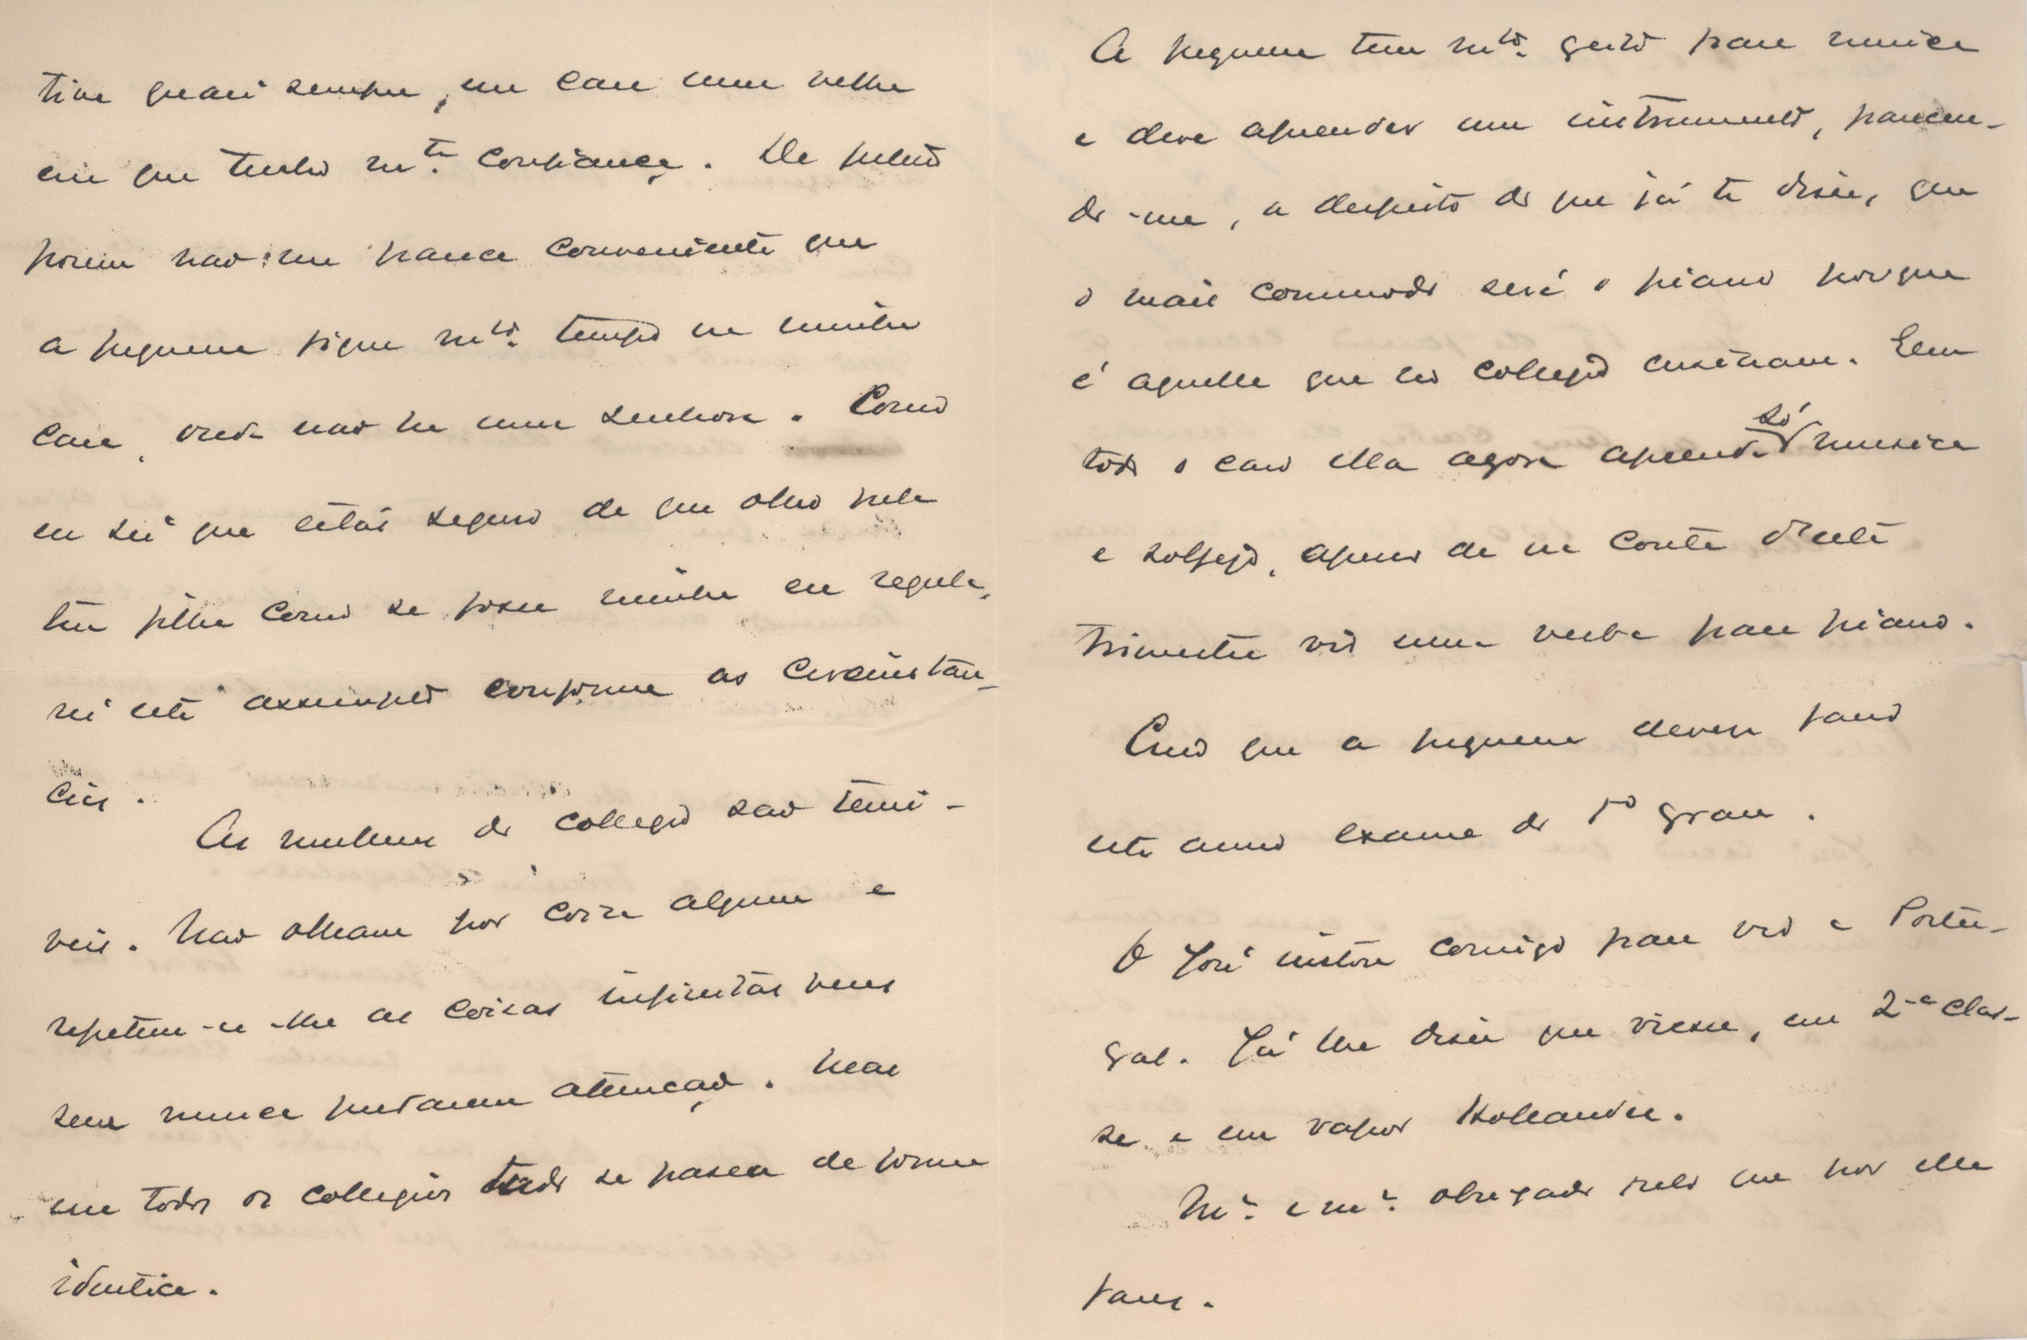 tive quasi sempre, em casa uma velha
em que tenho mta. confiança. De futuro
porem não me parece conveniente que
a pequena fique mto. tempo na minha
casa, onde não ha uma senhora. Como
eu sei que estás seguro de que olho pela
tua filha como se fosse minha eu regula-
rei este assumpto conforme as circumstan-
cias.
As mulheres do collegio são terri-
veis. Não olham por coisa alguma e
repetem-se-lhe as coisas infinitas vezes
sem nunca prestarem attenção. Mas
em todos os collegios tudo se passa de forma
identica.
A pequena tem mto. geito para musica
e deve aprender um instrumento, parecen-
do-me, a despeito do que já te disse, que
o mais commodo será o piano porque
é aquelle que no collegio ensinam. Em
todo o caso ella agora aprende só musica
e solfejo, apesar de na conta d'este
trimestre vir uma verba para piano.
Creio que a pequena deverá fazer
este anno exame do 1o grau.
O José insistiu comigo para vir a Portu-
gal. Já lhe disse que viesse, em 2a clas-
se e em vapor Hollandez.
Mo. e mo. obrigado pelo que por elle
fazes.